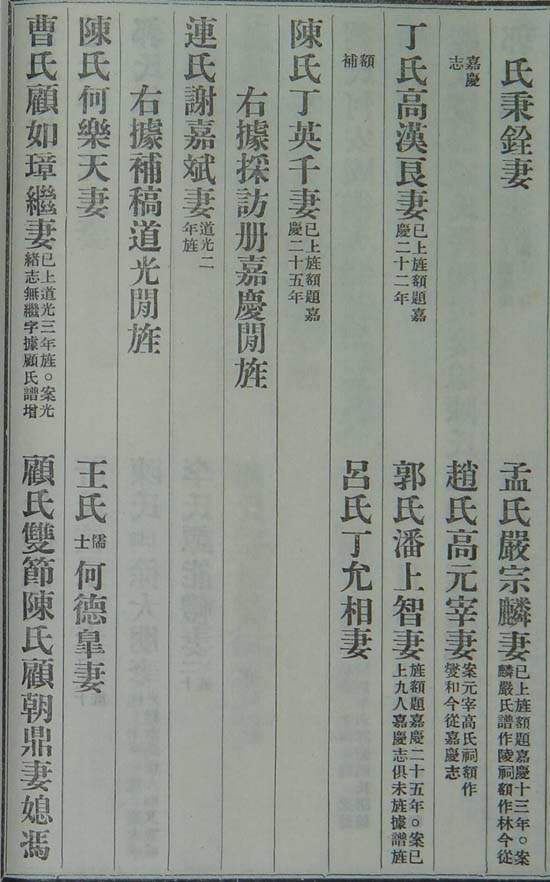 氏秉銓妻　孟氏嚴宗麟妻已上旌額題嘉慶十三年○案麟嚴氏譜作陵祠額作林今從
嘉慶志　趙氏高元宰妻案元宰高氏祠額作燮和今從嘉慶志
丁氏高漢良妻已上旌額題嘉慶二十二年　郭氏潘上智妻旌額題嘉慶二十五年○案已上九人嘉慶志俱未旌據譜旌
額補　呂氏丁允相妻
陳氏丁英千妻已上旌額題嘉慶二十五年
右據採訪册嘉慶閒旌
連氏謝嘉斌妻道光二年旌
右據補稿道光閒旌
陳氏何樂天妻　王氏儒士何德臯妻
曹氏顧如璋繼妻已上道光三年旌○案光緒志無繼字據顧氏譜增　顧氏雙節陳氏顧朝鼎妻媳馮